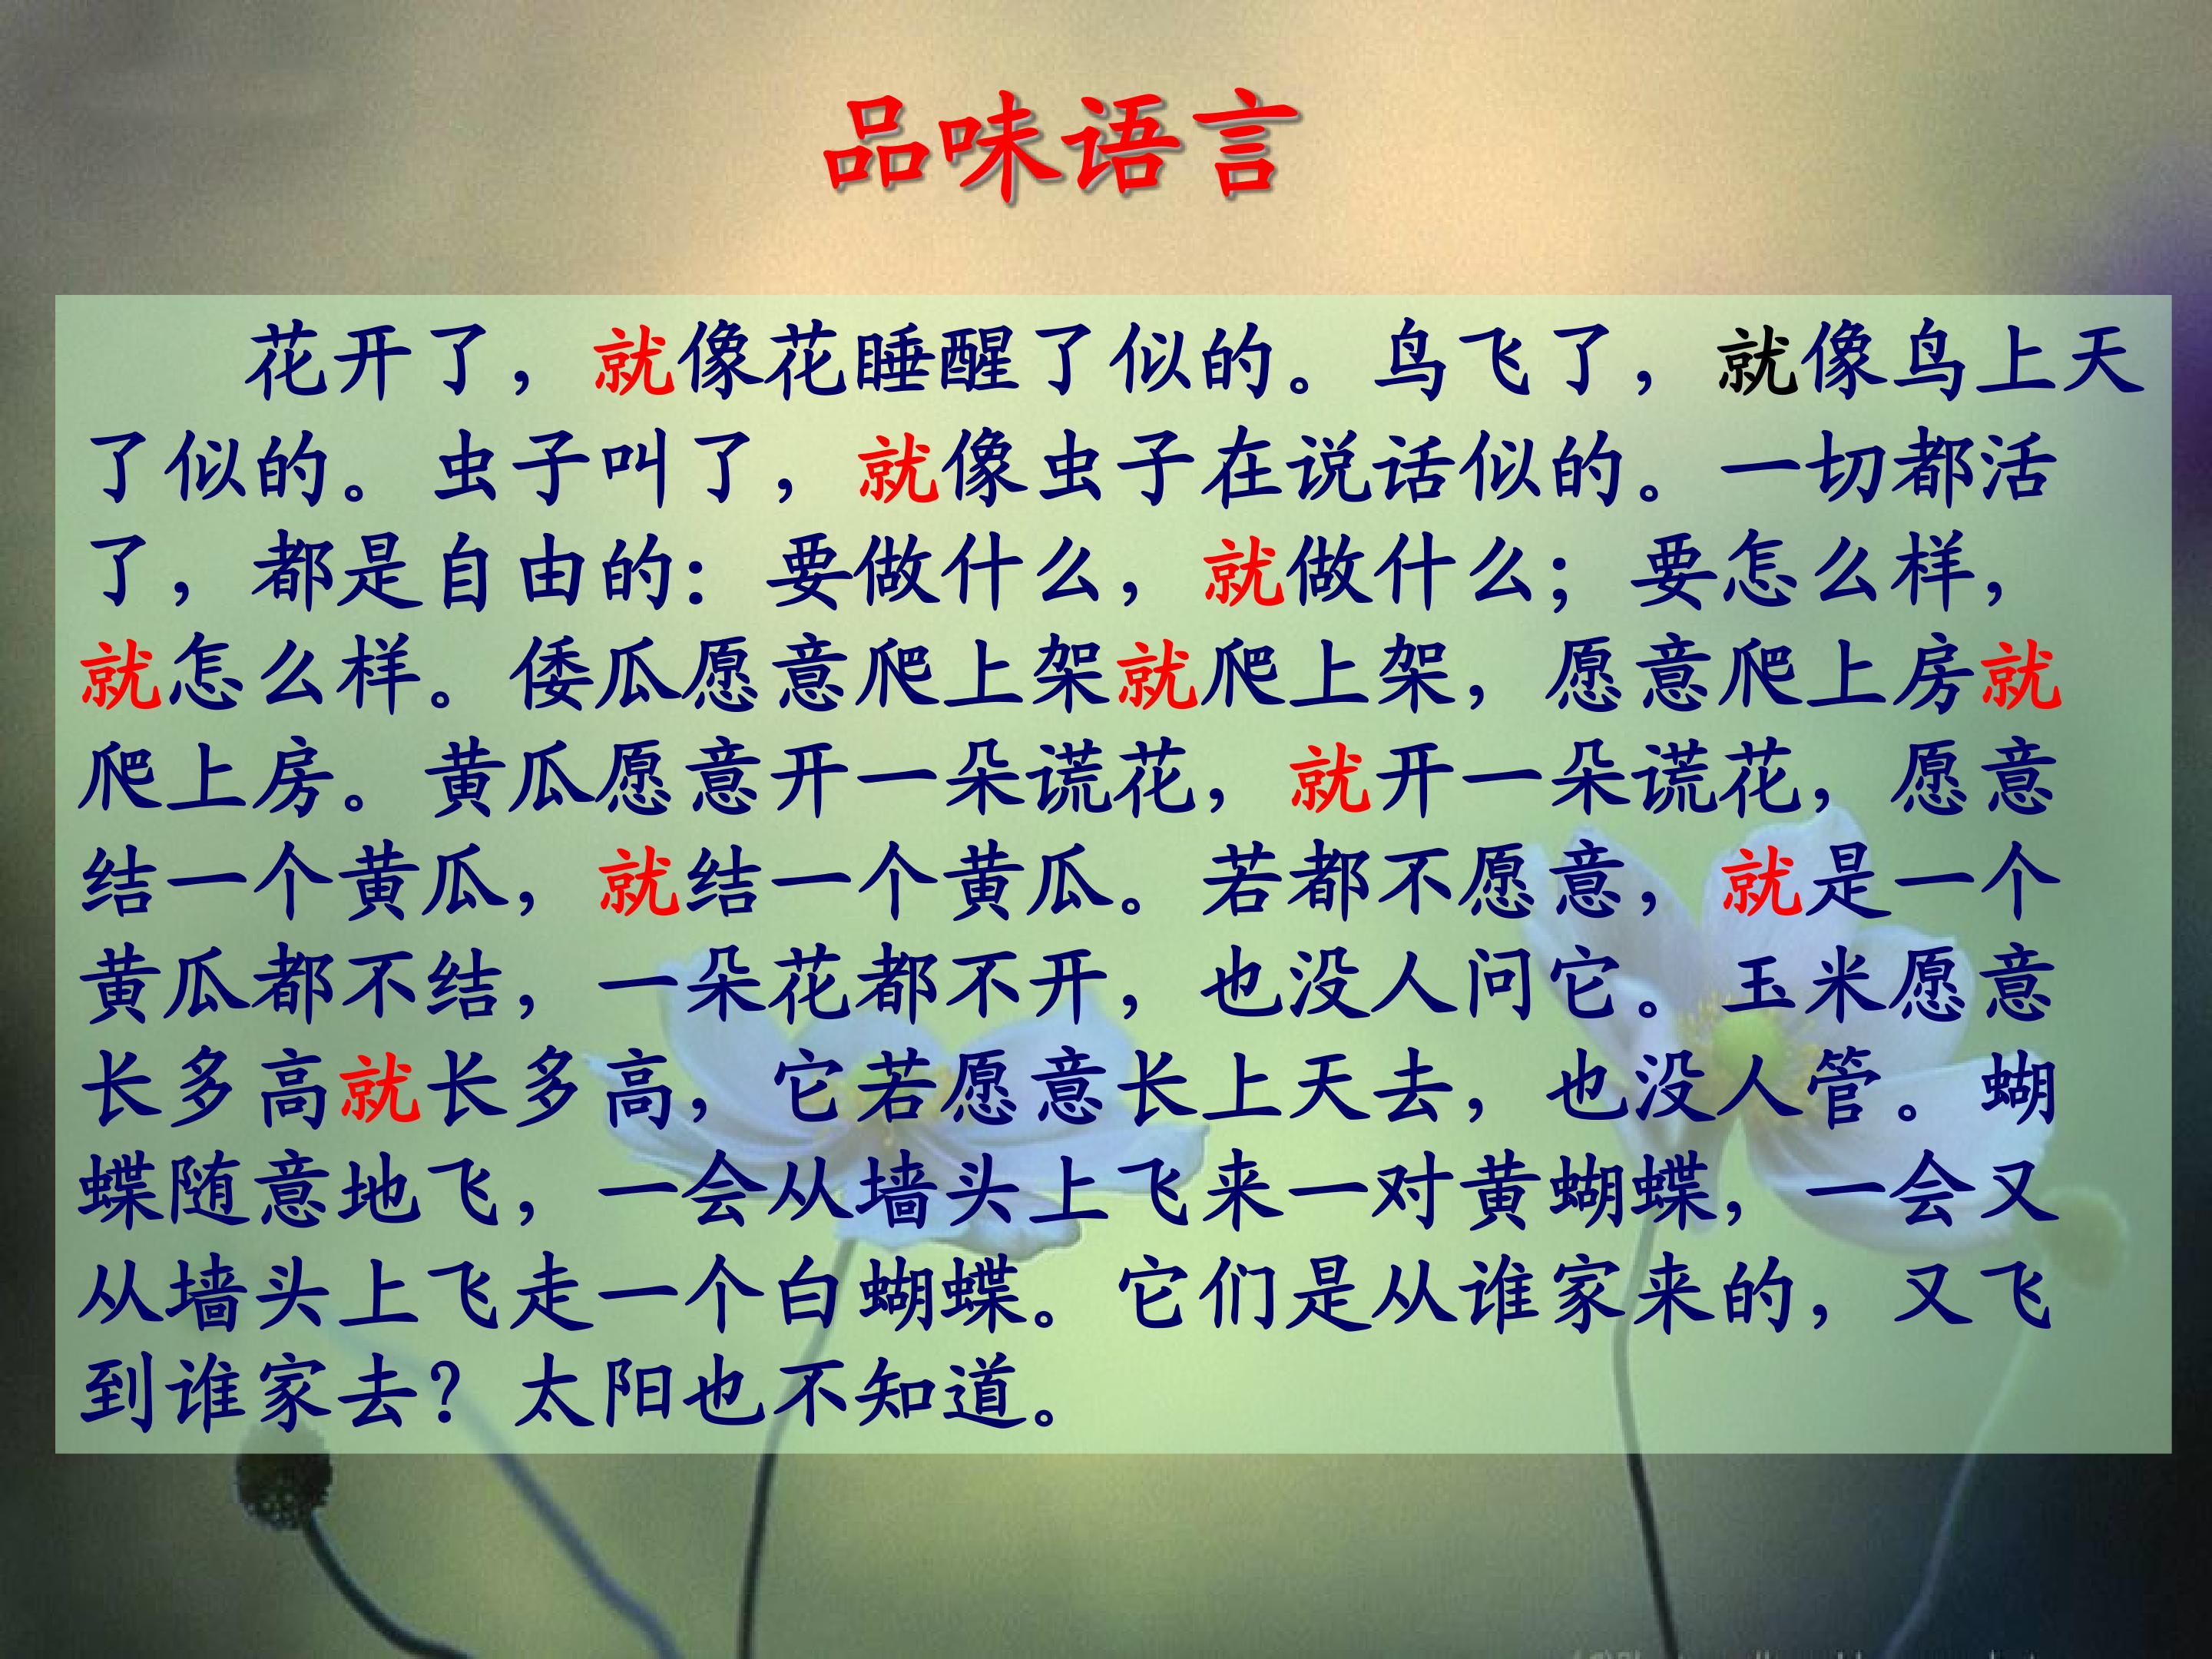 品味语言
花开了，就像花睡醒了似的。鸟飞了，就像鸟上天
了似的。虫子叫了，就像虫子在说话似的。一切都活
了，都是自由的：要做什么，就做什么；要怎么样，
就怎么样。倭瓜愿意爬上架就爬上架，愿意爬上房就
爬上房。黄瓜愿意开一朵谎花，就开一朵谎花，愿意
结一个黄瓜，就结一个黄瓜。若都不愿意，就是一个
黄瓜都不结，一朵花都不开，也没人问它。玉米愿意
长多高就长多高，它若愿意长上天去，也没人管。蝴
蝶随意地飞，一会从墙头上飞来一对黄蝴蝶，一会又
从墙头上飞走一个白蝴蝶。它们是从谁家来的，又飞
到谁家去？太阳也不知道。